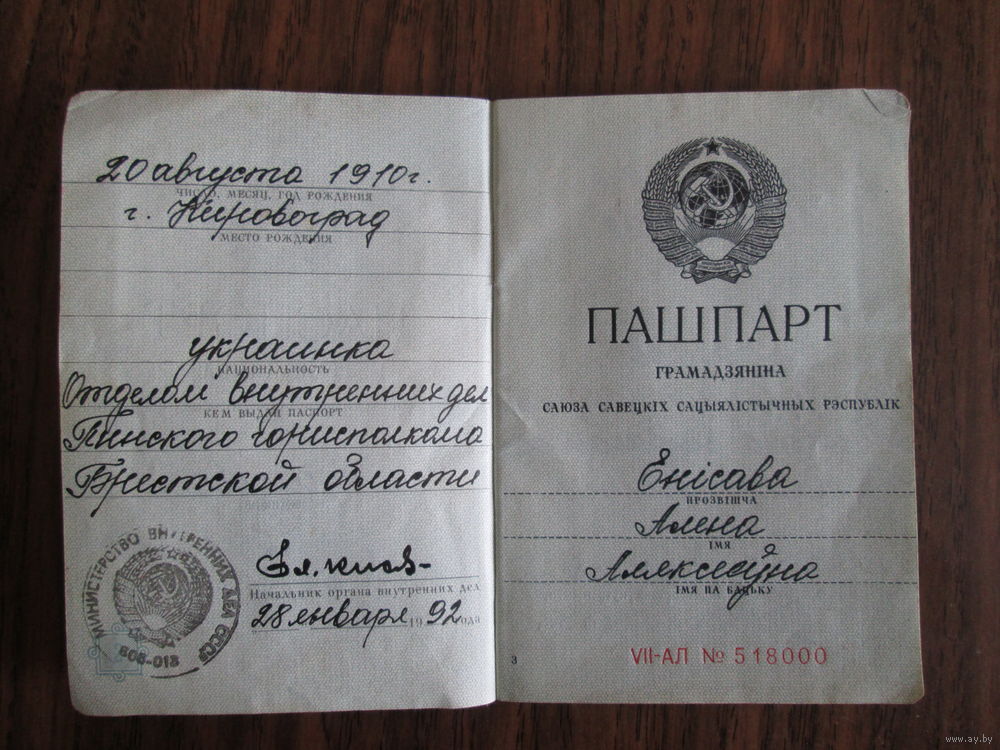 20 августа 1910г.
ЧИСЛО, МЕСЯЦ, ГОД РОЖДЕНИЯ
г. Кировоград
МЕСТО РОЖДЕНИЯ
украинка
НАЦИОНАЛЬНОСТЬ
Отделом внутренних дел
КЕМ ВЫДАН ПАСПОРТ
Пинского горисполкома
Брестской области
МИНИСТЕРСТВО ВНУТРЕННИХ ДЕЛ СССР
808-013
Начальник органа внутренних дел
28 января 1992 года
ПАШПАРТ
ГРАМАДЗЯНІНА
САЮЗА САВЕЦКІХ САЦЫЯЛІСТЫЧНЫХ РЭСПУБЛІК
Енісава
ПРОЗВІШЧА
Алена
ІМЯ
Аляксееўна
ІМЯ ПА БАЦЬКУ
3
VII-АЛ № 518000
www.ay.by